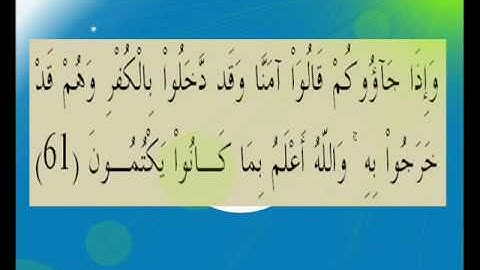 وَإِذَا جَآؤُوكُمْ قَالُوَاْ آمَنَّا وَقَد دَّخَلُواْ بِالْكُفْرِ وَهُمْ قَدْ
خَرَجُواْ بِهِ ۚ وَاللّهُ أَعْلَمُ بِمَا كَانُواْ يَكْتُمُونَ (61)